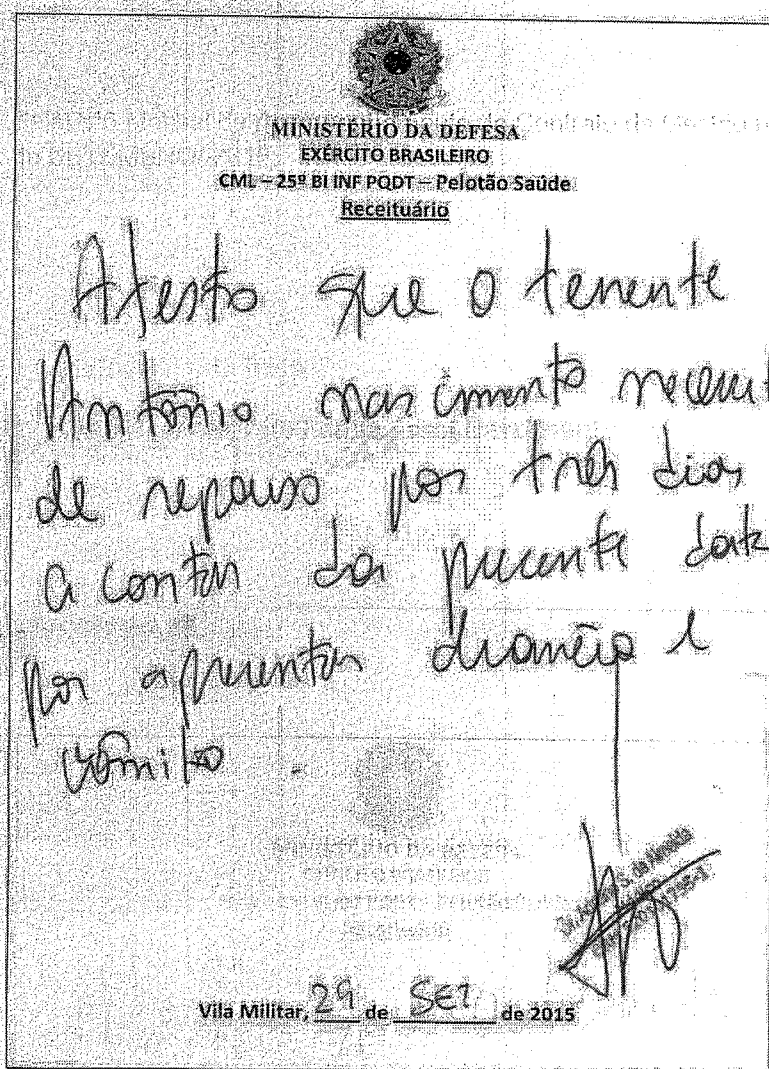 MINISTÉRIO DA DEFESA
EXÉRCITO BRASILEIRO
CML – 25º BI INF PQDT – Pelotão Saúde
Receituário
Atesto que o tenente
Antônio nascimento necessit
de repouso por três dias
a contar da presente data
por apresentar diarréia e
vômito.
Vila Militar, 29 de SET de 2015